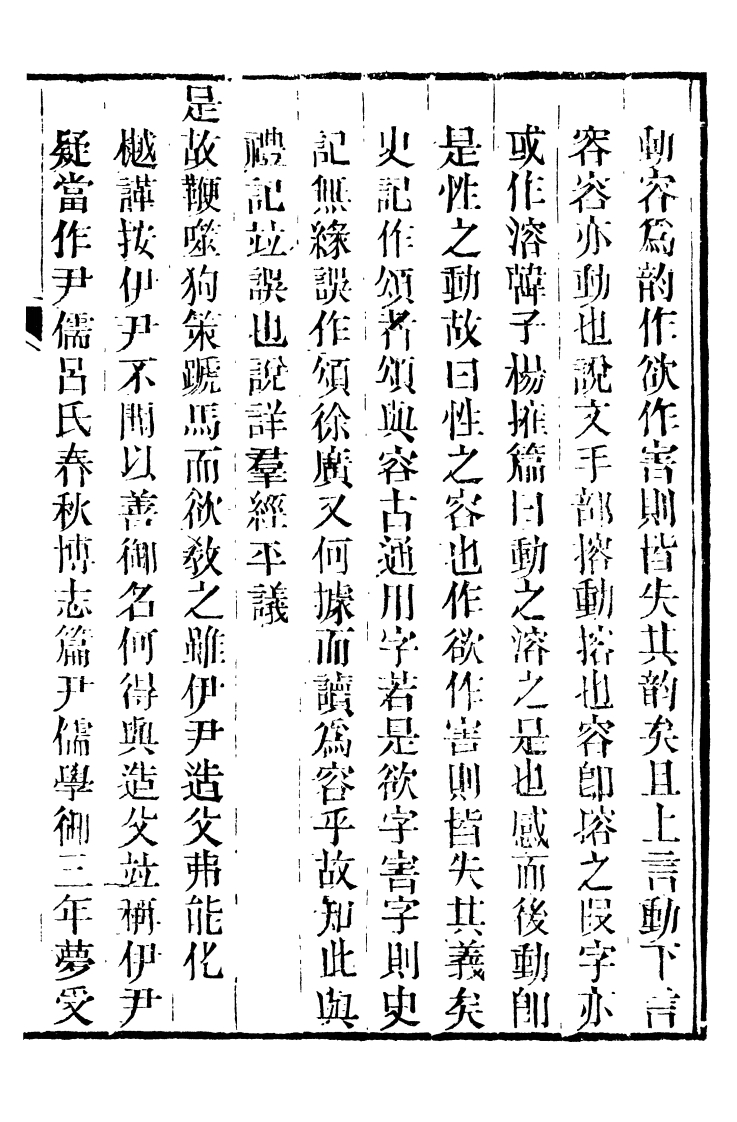 動容爲韵作欲作害則皆失其韵矣且上言動下言
容容亦動也說文手部搈動搈也容卽搈之叚字亦
或作溶韓子楊搉篇曰動之溶之是也感而後動卽
是性之動故曰性之容也作欲作害則皆失其義矣
史記作頌者頌與容古通用字若是欲字害字則史
記無緣誤作頌徐廣又何據而讀爲容乎故知此與
禮記竝誤也說詳羣經平議
是故鞭噬狗策蹏馬而欲敎之雖伊尹造父弗能化
樾謹按伊尹不聞以善御名何得與造父竝稱伊尹
疑當作尹儒呂氏春秋博志篇尹儒學御三年夢受